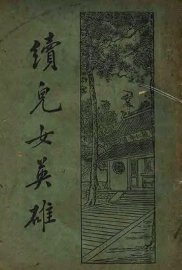 續兒女英雄